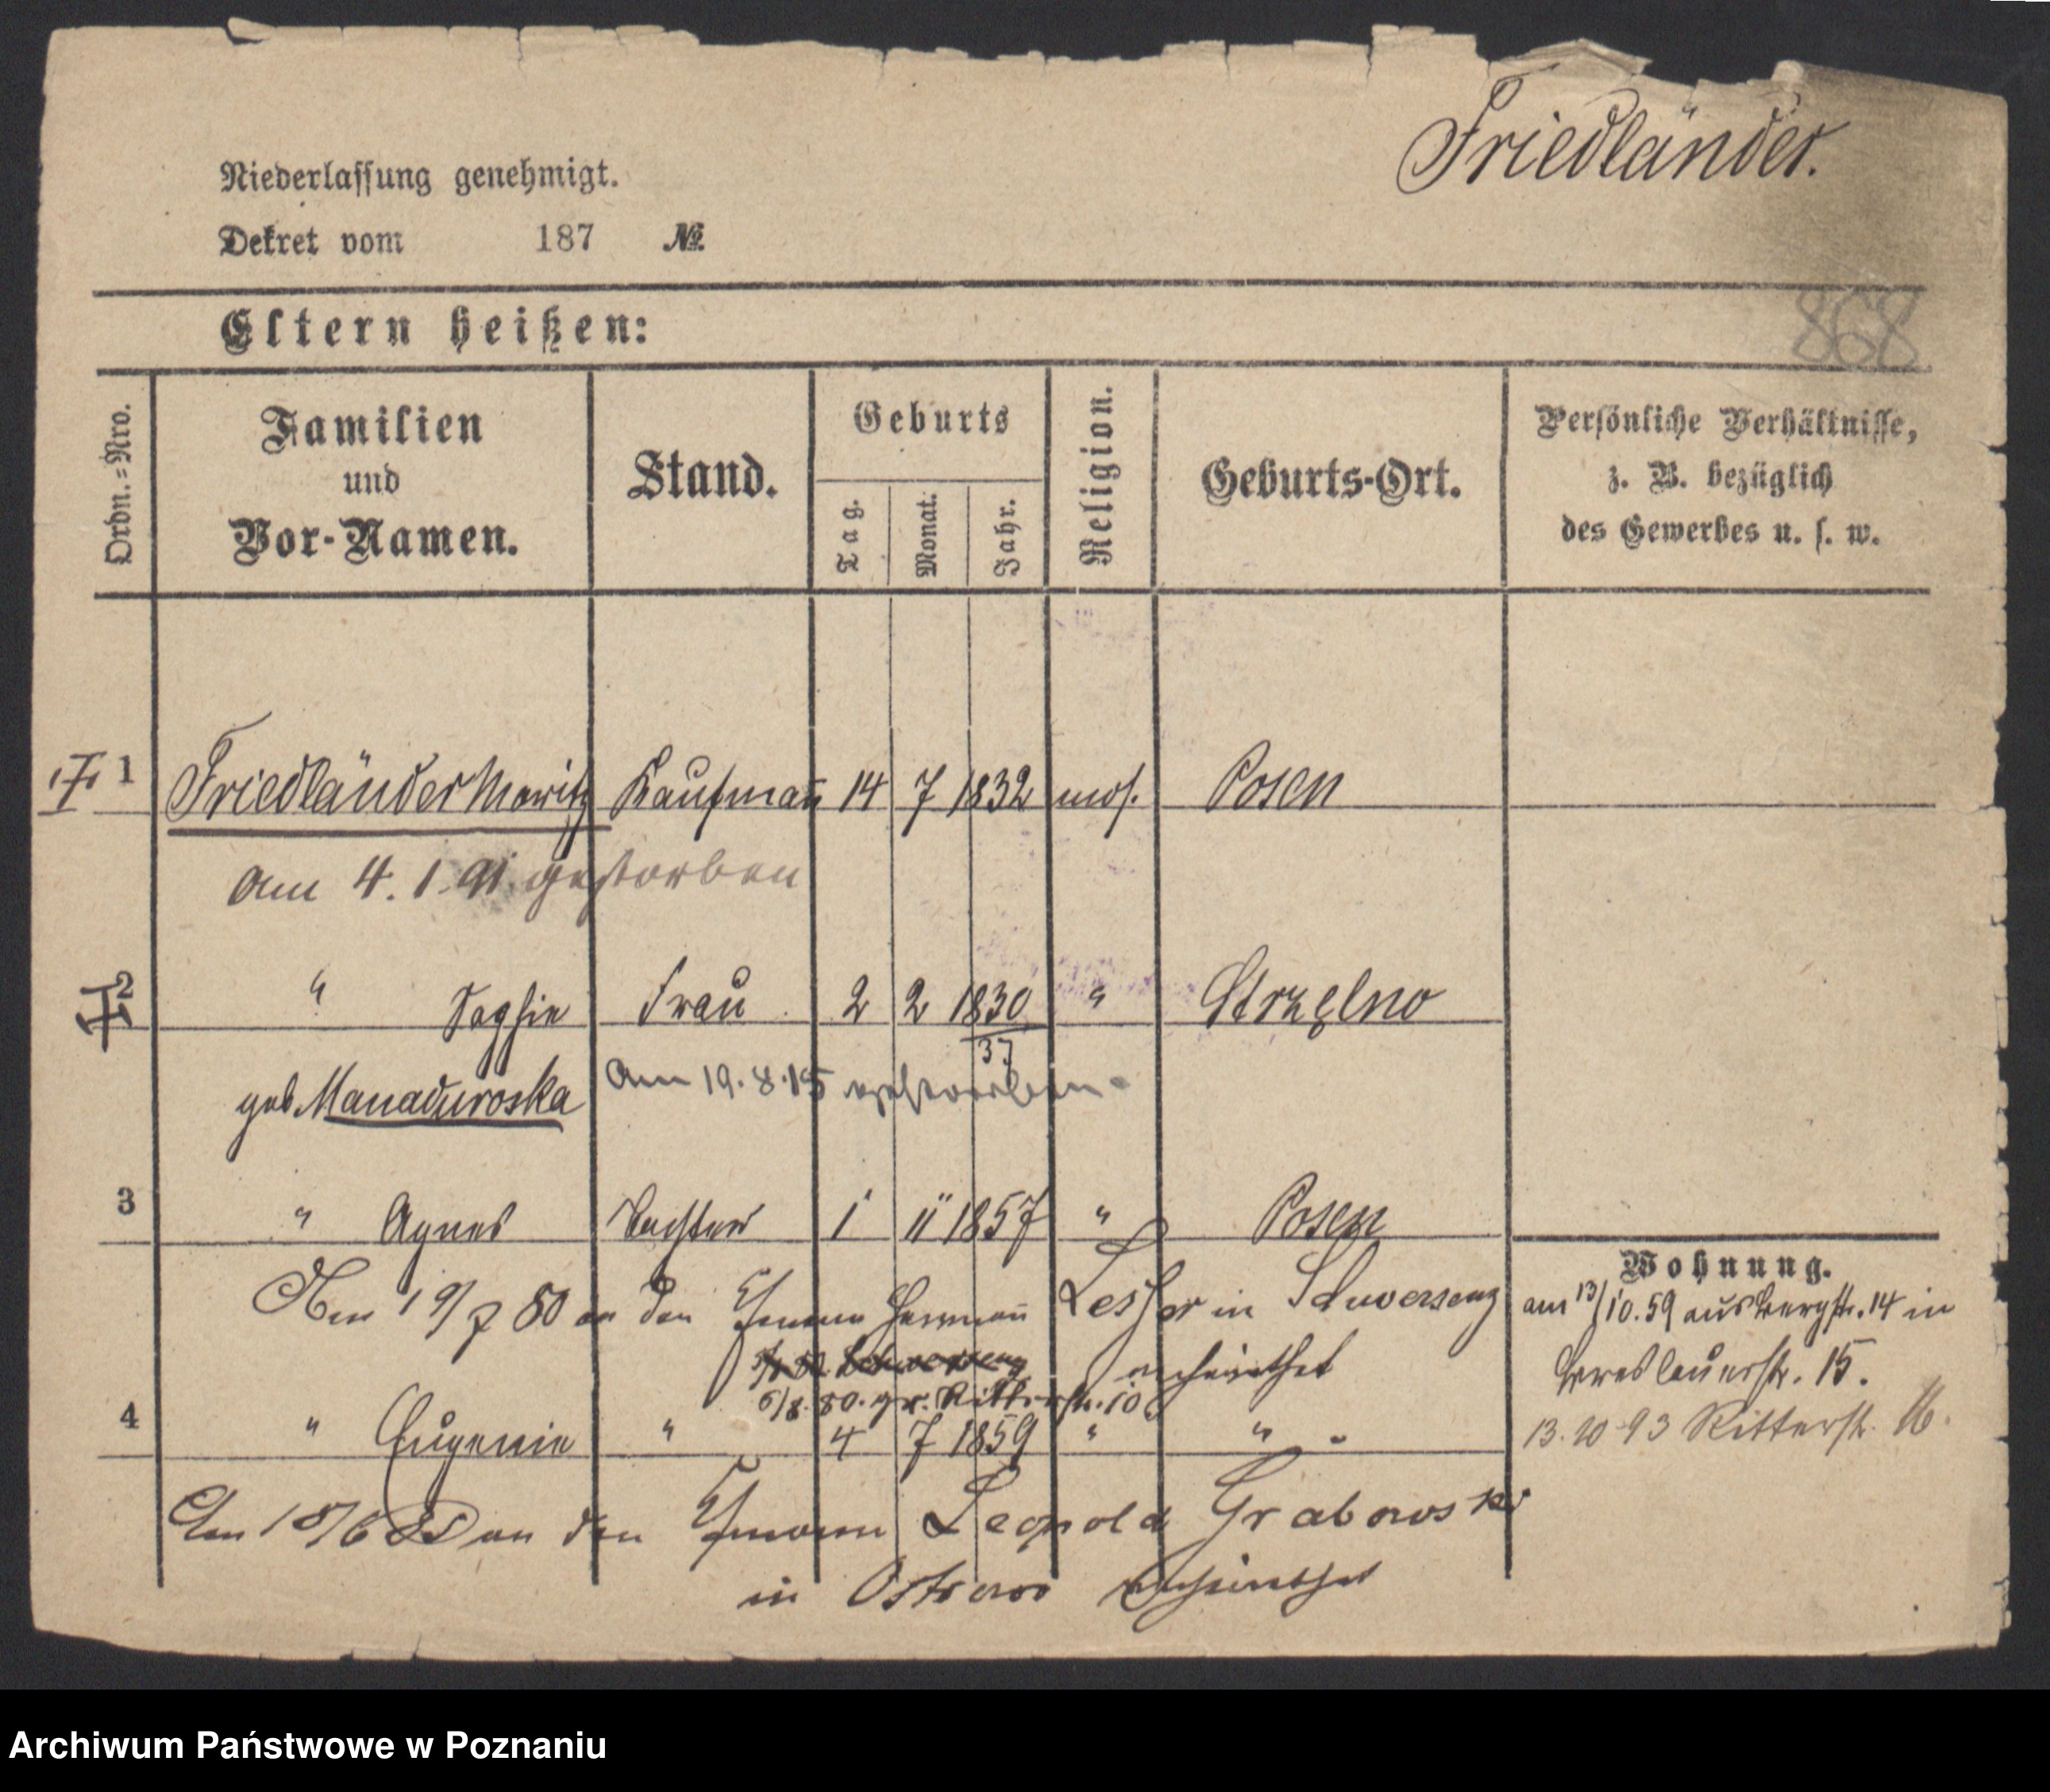 Friedländer.
Niederlassung genehmigt.
Dekret vom 187 №
868
Eltern heißen:
Ordn.=Nro.
Familien
und
Vor-Namen.
Stand.
Geburts
Tag.
Monat.
Jahr.
Religion.
Geburts-Ort.
Persönliche Verhältnisse,
z. B. bezüglich
des Gewerbes u. s. w.
1 Friedländer Moritz Kaufmañ 14 7 1832 mos. Posen
Am 4. 1. 91. gestorben
2 " Sophie Frau 2 2 1830 " Strzelno
37
geb. Manadwroska Am 19. 8. 15 gestorben.
3 " Agnes Tochter 1 11 1857 " Posen
Wohnung.
Am 19/7 80 an den Hermañ Lesser in Schwersenz
verheirathet
am 13/10. 59 aus Bergstr. 14 in
Breslauerstr. 15.
6/8. 80. gr. Ritterstr. 10
4 " Eugenie " 4 7 1859 " "
13. 10 93 Ritterstr. 16.
Am 18/6 85 an den Leopold Grabowski
in Ostrowo verheirathet
Archiwum Państwowe w Poznaniu